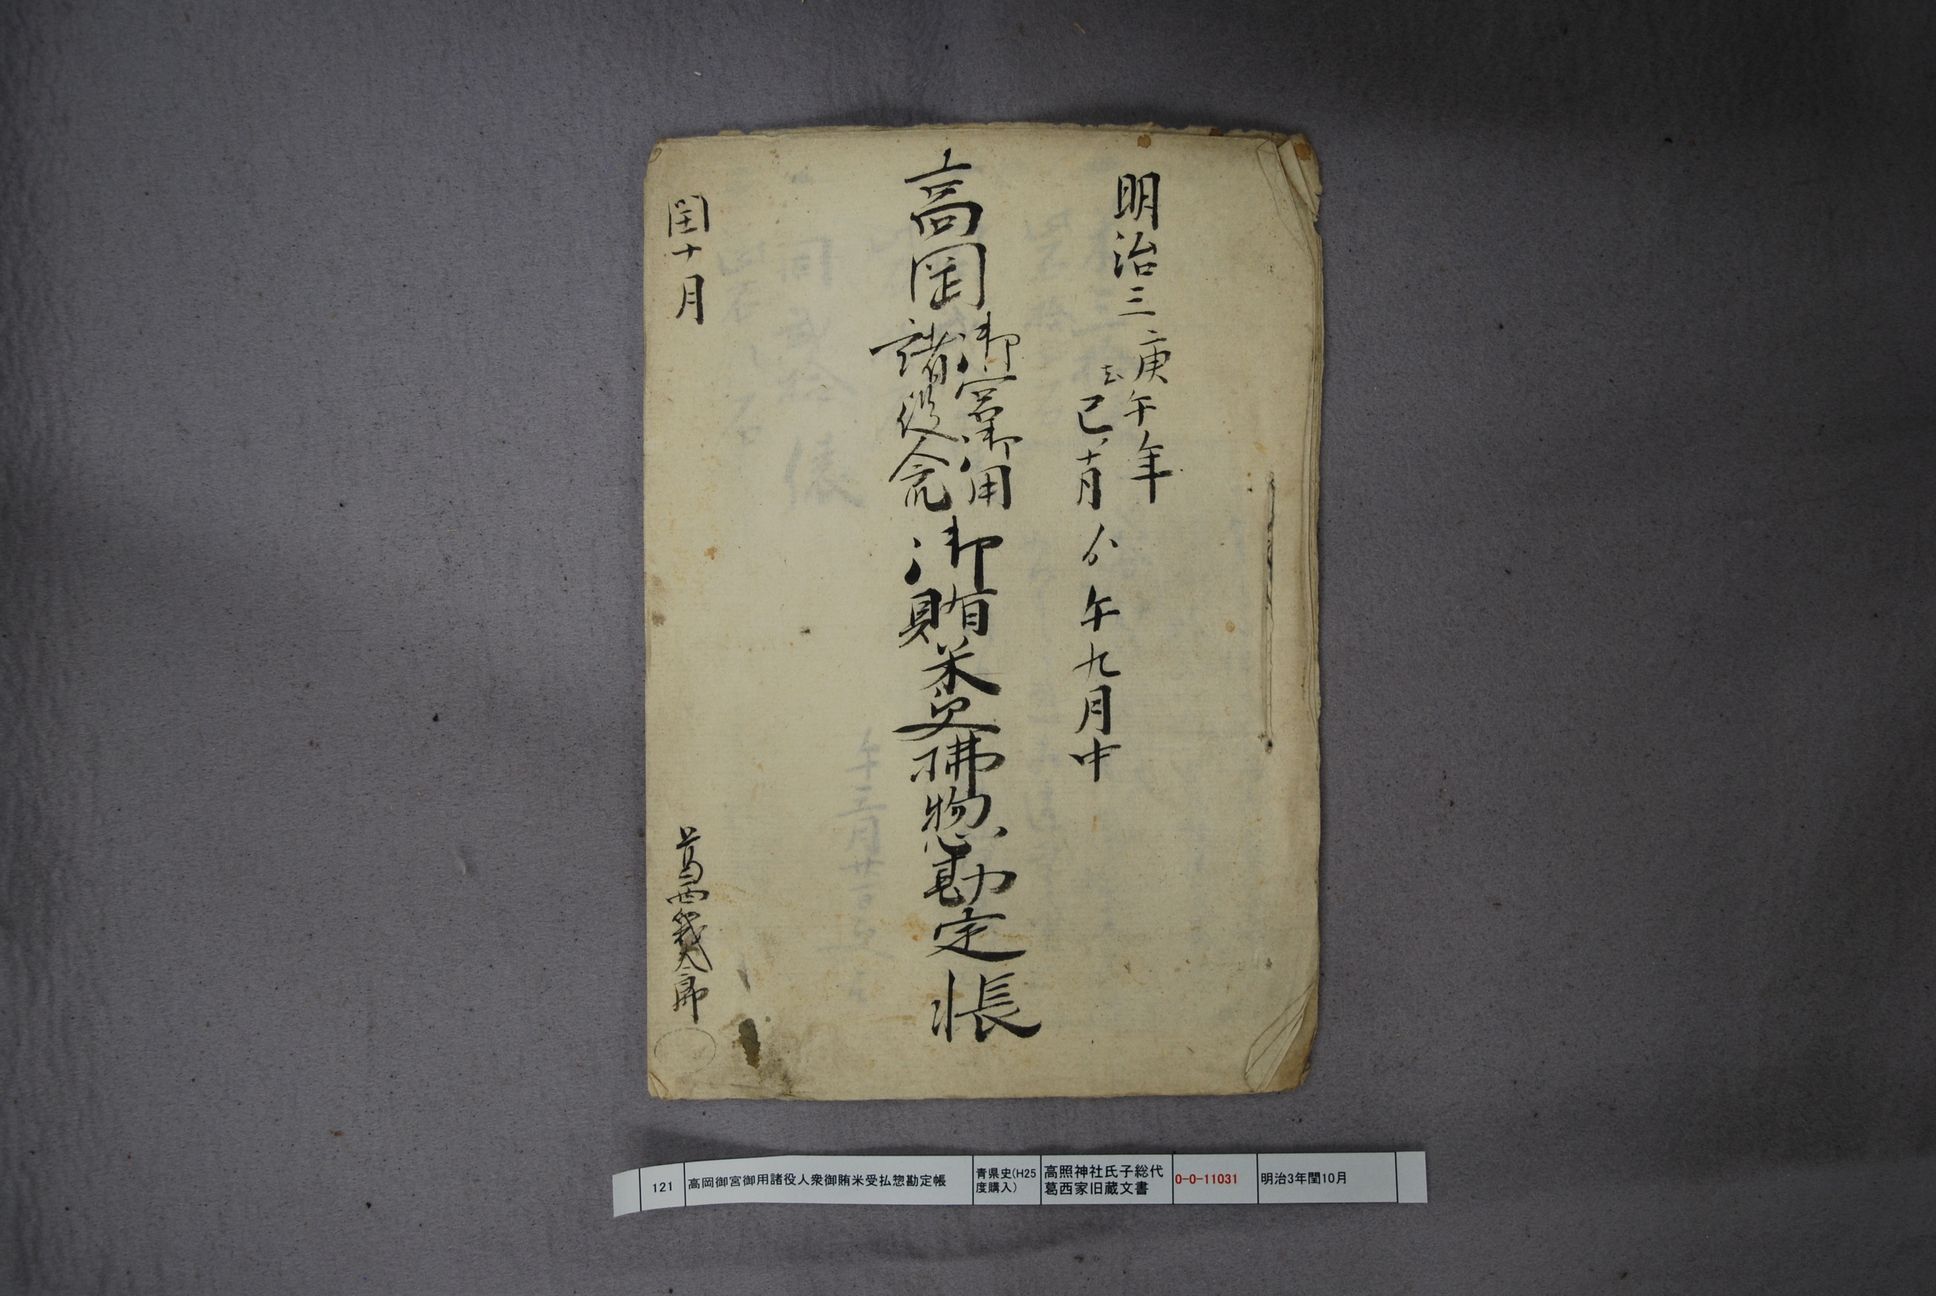 明治三庚午年
去巳十月ゟ午九月中
高岡御宮御用諸役人衆御賄米受拂惣勘定帳
閏十月
葛西幾太郎
121
高岡御宮御用諸役人衆御賄米受払惣勘定帳
青県史(H25
度購入)
高照神社氏子総代
葛西家旧蔵文書
0-0-11031
明治3年閏10月